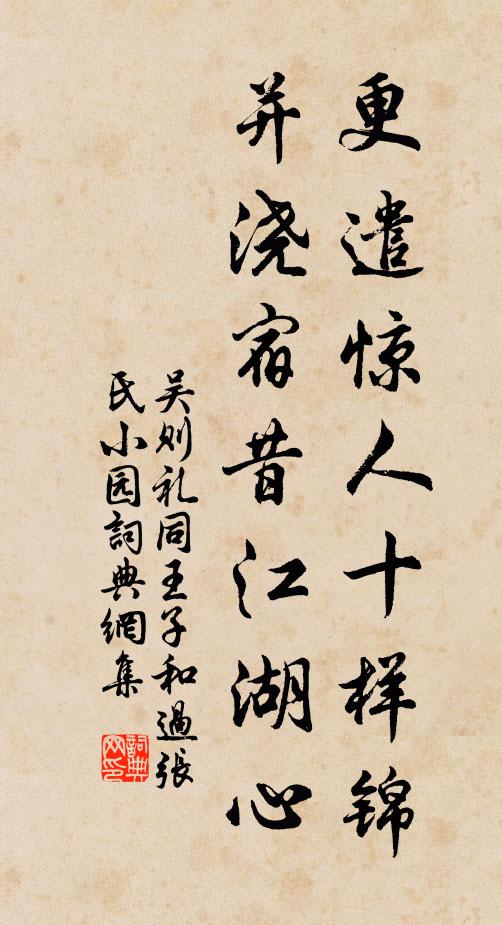 更遣惊人十样锦
并浇宿昔江湖心
吴则礼同王子和過張
氏小园詞典網集
詞典网印